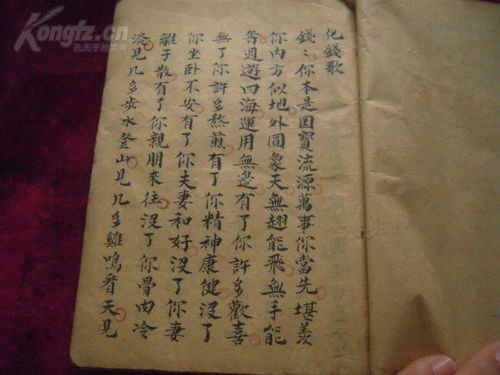 Kongfz.cn
化錢歌
錢〻你本是国寶流源萬事你當先堪羨
你内方似地外圓象天無翅能飛無手能
週遊四海運用無邊有了你許多歡喜
無了你許多熬煎有了你精神康健没了
你坐卧不安有了你夫妻和好没了你妻
離子散有了你親朋來往没了你骨肉冷
淡見几多步水登山見几多雞鳴看天見